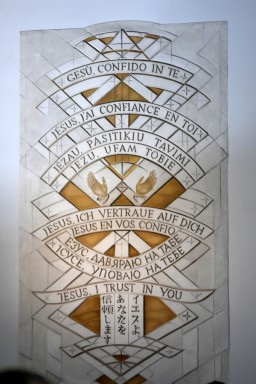 GESÙ, CONFIDO IN TE
JESUS, J'AI CONFIANCE EN TOI
JĖZAU, PASITIKIU TAVIMI
JEZU, UFAM TOBIE
JESUS, ICH VERTRAUE AUF DICH
JESUS EN VOS CONFIO
ЕЗУС, ДАВЯРАЮ НА ТАБЕ
ІСУСЕ, УПОВАЮ НА ТЕБЕ
JESUS, I TRUST IN YOU
イエスよ、
あなたを
信頼します